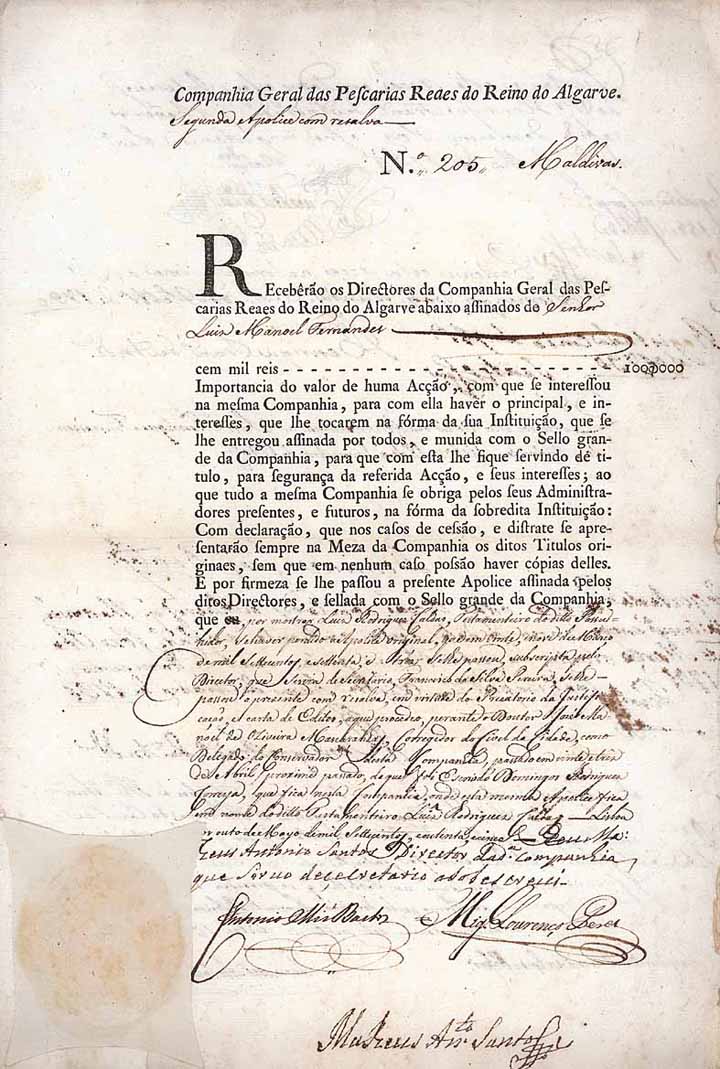 Companhia Geral das Peſcarias Reaes do Reino do Algarve.
Segunda Apolice com resalva
N.º 205 Maldivas.
REcebêrão os Directores da Companhia Geral das Peſ-
carias Reaes do Reino do Algarve abaixo aſſinados do Senhor
Luis Manoel Fernandes
cem mil reis - - - - - - - - - - - - - - - - - - - - - - 100U000
Importancia do valor de huma Acção, com que ſe intereſſou
na meſma Companhia, para com ella haver o principal, e in-
tereſſes, que lhe tocarem na fórma da ſua Inſtituição, que ſe
lhe entregou aſſinada por todos, e munida com o Sello gran-
de da Companhia, para que com eſta lhe fique ſervindo de ti-
tulo, para ſegurança da referida Acção, e ſeus intereſſes; ao
que tudo a meſma Companhia ſe obriga pelos ſeus Adminiſtra-
dores preſentes, e futuros, na fórma da ſobredita Inſtituição:
Com declaração, que nos caſos de ceſſão, e diſtrate ſe apre-
ſentarão ſempre na Meza da Companhia os ditos Titulos ori-
ginaes, ſem que em nenhum caſo poſsão haver cópias delles.
E por firmeza ſe lhe paſſou a preſente Apolice aſſinada pelos
ditos Directores, e ſellada com o Sello grande da Companhia,
que eu, por mostrar Luis Rodrigues Caldas, Testamenteiro do ditto Possu-
hidor, se haver perdido a Apolice original, que em vinte, e nove de Março
de mil Settecentos, e settenta, e tres, se lhe passou, subscripta pelo
Director, que servia de Secretario, Francisco da Silva Pereira, se lhe
passou a presente com resalva, em virtude do Precatorio da Justifi-
cação, e carta de Editos, a que procedeo, perante o Doutor José Ma-
noel de Oliveira Mascarenhas, Corregedor do Civel da Cidade, como
Delegado do Conservador desta Companhia, passado em vinte e tres
de Abril proximo passado, de que foi Escrivão Domingos Rodrigues
que fica nesta Companhia, onde esta mesma Apolice fica
em nome do ditto Testamenteiro Luis Rodrigues Caldas Lisboa
outo de Mayo de mil Settecentos, e outenta, e cinco E Eu Ma-
theus Antonio Santos Director da d.ª Companhia
que Sirvo de secretario a sobescrevi.
Antonio Miz Bastos Mig. Lourenço Peres
Matheus An.to Santos